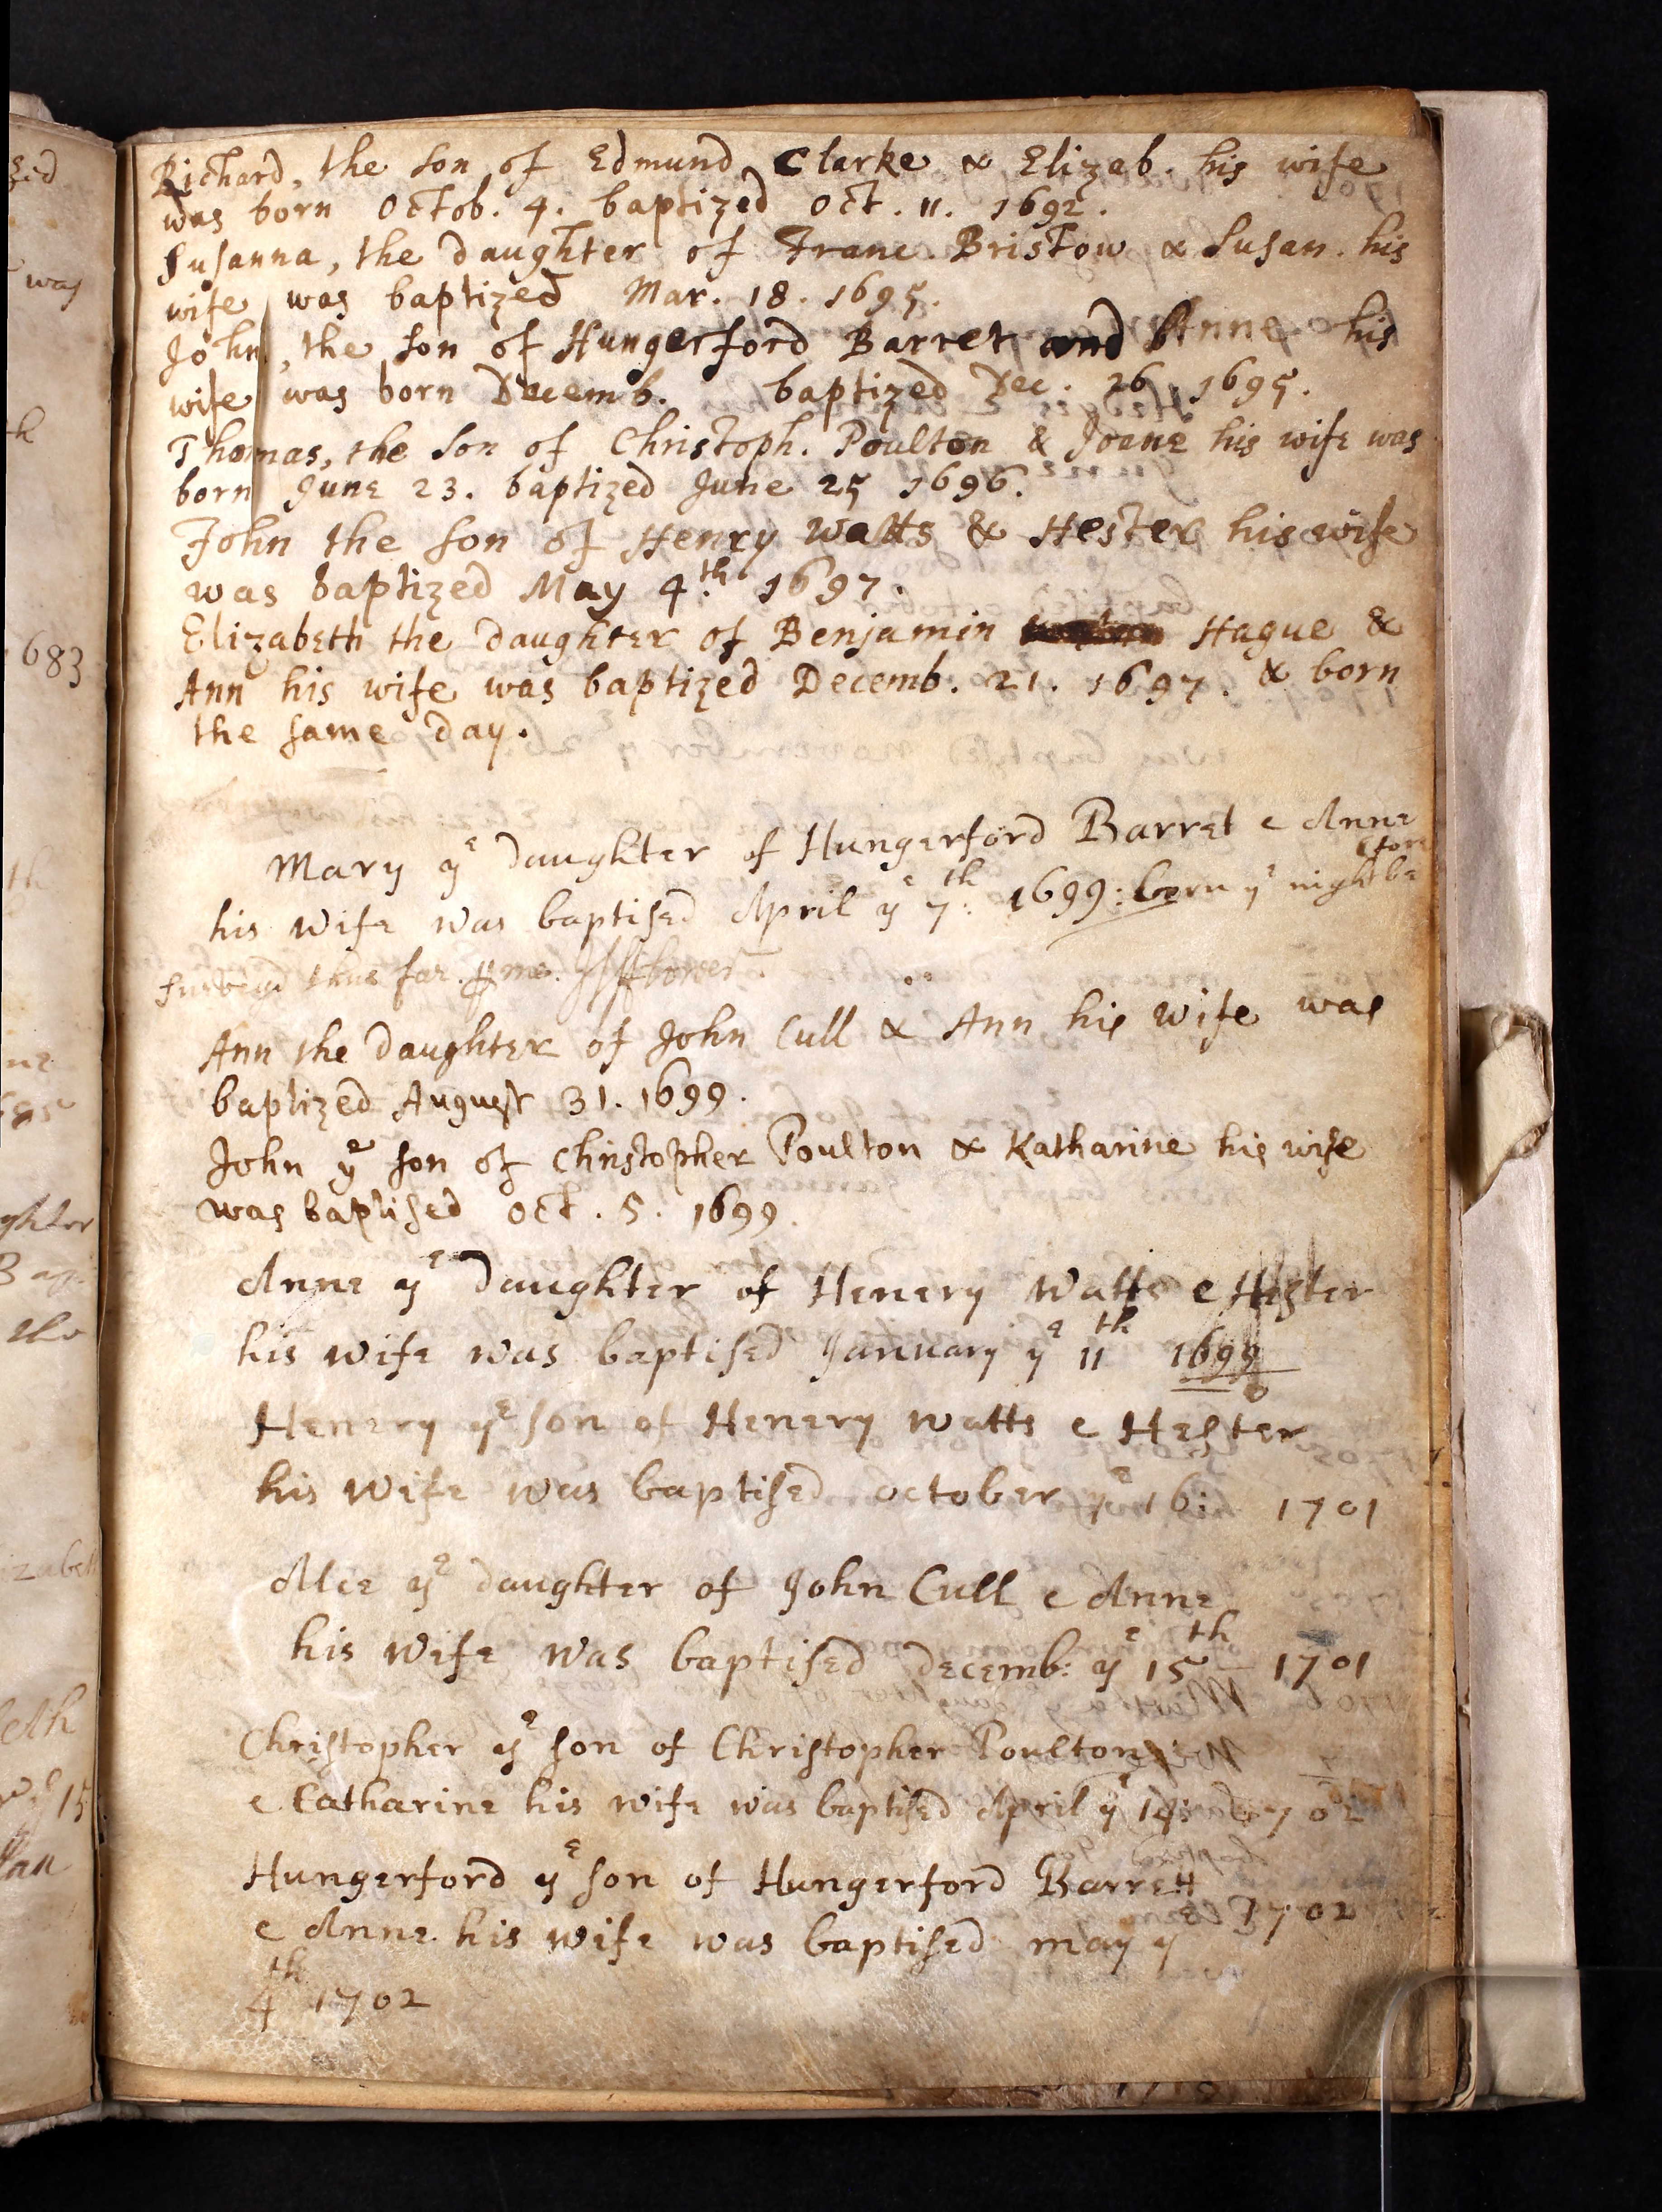 Richard, the son of Edmund Clarke & Elizab. his wife
was born Octob. 4. baptized Oct. 11. 1692.
Susanna, the daughter of Franc. Bristow & Susan. his
wife was baptized Mar. 18. 1695.
John, the son of Hungerford Barret and Anne his
wife was born Decemb. baptized Dec. 26. 1695.
Thomas, the son of Christoph. Poulton & Joane his wife was
born June 23. baptized June 25 1696.
John the son of Henry Watts & Hester his wife
was baptized May 4.th 1697.
Elizabeth the daughter of Benjamin Hague &
Ann his wife was baptized Decemb. 21. 1697. & born
the same day.
Mary ye daughter of Hungerford Barret e Anne
his wife was baptised April ye 7th: 1699: born ye night be
fore
thus far. me.
Ann the daughter of John Cull & Ann his wife was
baptized August 31. 1699.
John ye son of Christopher Poulton & Katharine his wife
was baptised Oct. 5. 1699.
Anne ye daughter of Henery Watts e Hester
his wife was baptised January ye 11th 1699
Henery ye son of Henery Watts e Hester
his wife was baptised october ye 16: 1701
Alce ye daughter of John Cull e Anne
his wife was baptised decemb: ye 15th 1701
Christopher ye son of Christopher Poulton
e Catharine his wife was baptised April ye 1702
Hungerford ye son of Hungerford Barrett
e Anne his wife was baptised may ye 1702
4th 1702